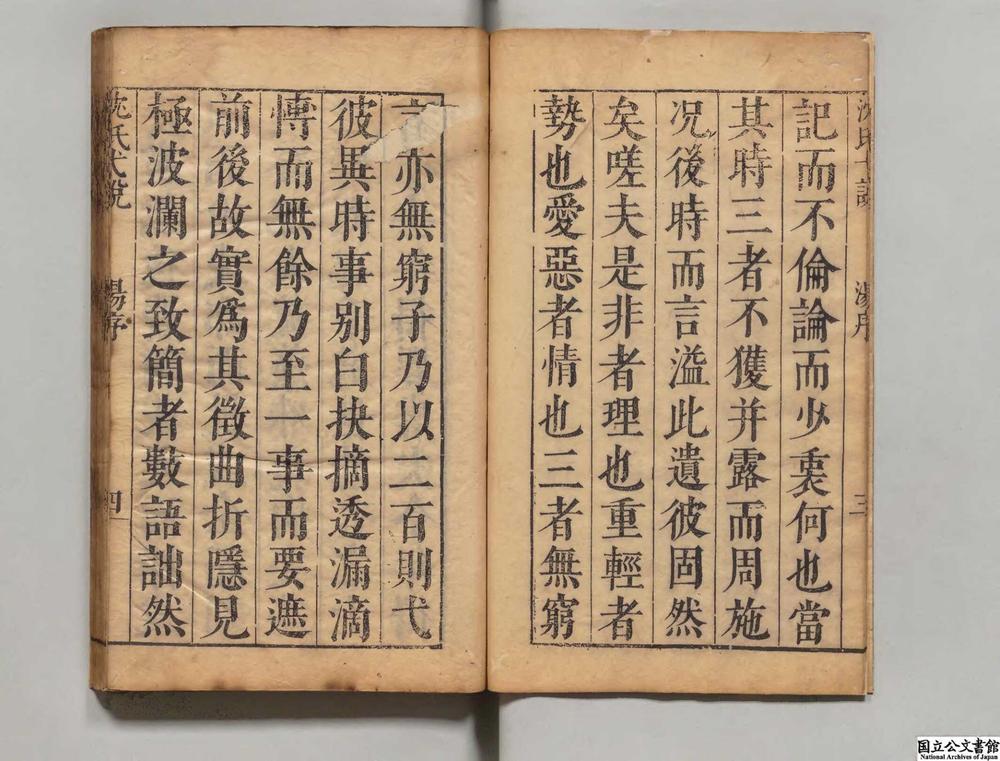 記而不倫論而少衷何也當
其時三者不獲并露而周施
况後時而言溢此遺彼固然
矣嗟夫是非者理也重輕者
勢也愛惡者情也三者無窮
亦無窮子乃以二百則弋
彼異時事别白抉摘透漏滴
慱而無餘乃至一事而要遮
前後故實爲其徵曲折隱見
極波瀾之致簡者數語詘然
沈氏弋說
湯序
四
国立公文書館
National Archives of Japan